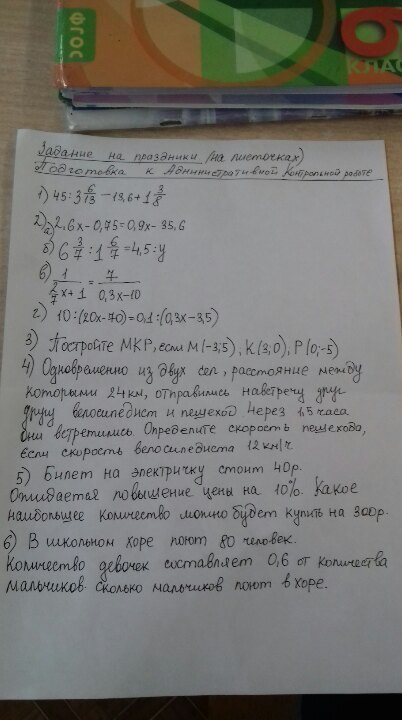 ФГОС
6
КЛАС
Задание на праздники (на листочках)
Подготовка к Административной контрольной работе
1) 45:3 6/13 - 13,6 + 1 3/8
2) а) 2,6x-0,75=0,9x-35,6
б) 6 3/7 : 1 6/7 = 4,5 : y
в) 1/(2/7 x+1) = 7/(0,3x-10)
г) 10:(20x-70)=0,1:(0,3x-3,5)
3) Постройте МКР, если М(-3;5), К(3;0), Р(0;-5)
4) Одновременно из двух сел, расстояние между
которыми 24км, отправились навстречу друг
другу велосипедист и пешеход. Через 1,5 часа
они встретились. Определите скорость пешехода,
если скорость велосипедиста 12 км/ч.
5) Билет на электричку стоит 40р.
Ожидается повышение цены на 10%. Какое
наибольшее количество можно будет купить на 300р.
6) В школьном хоре поют 80 человек.
Количество девочек составляет 0,6 от количества
мальчиков. сколько мальчиков поют в хоре.